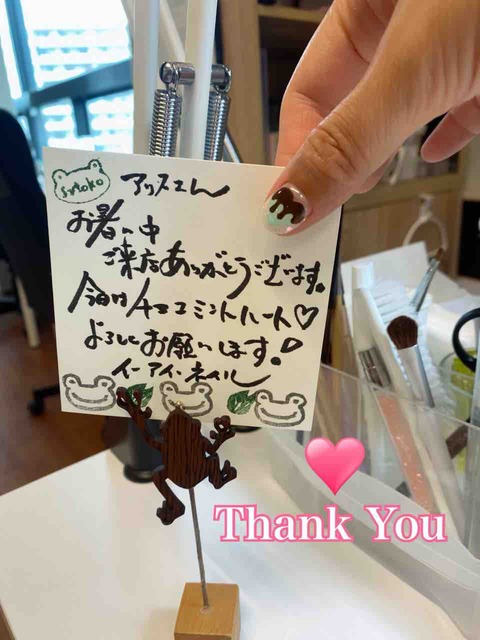 Satoko
アリスさん
お暑い中
ご来店ありがとうございます。
今日はチョコミントハート♡
よろしくお願いします!
イーアイ・ネイル
Thank You